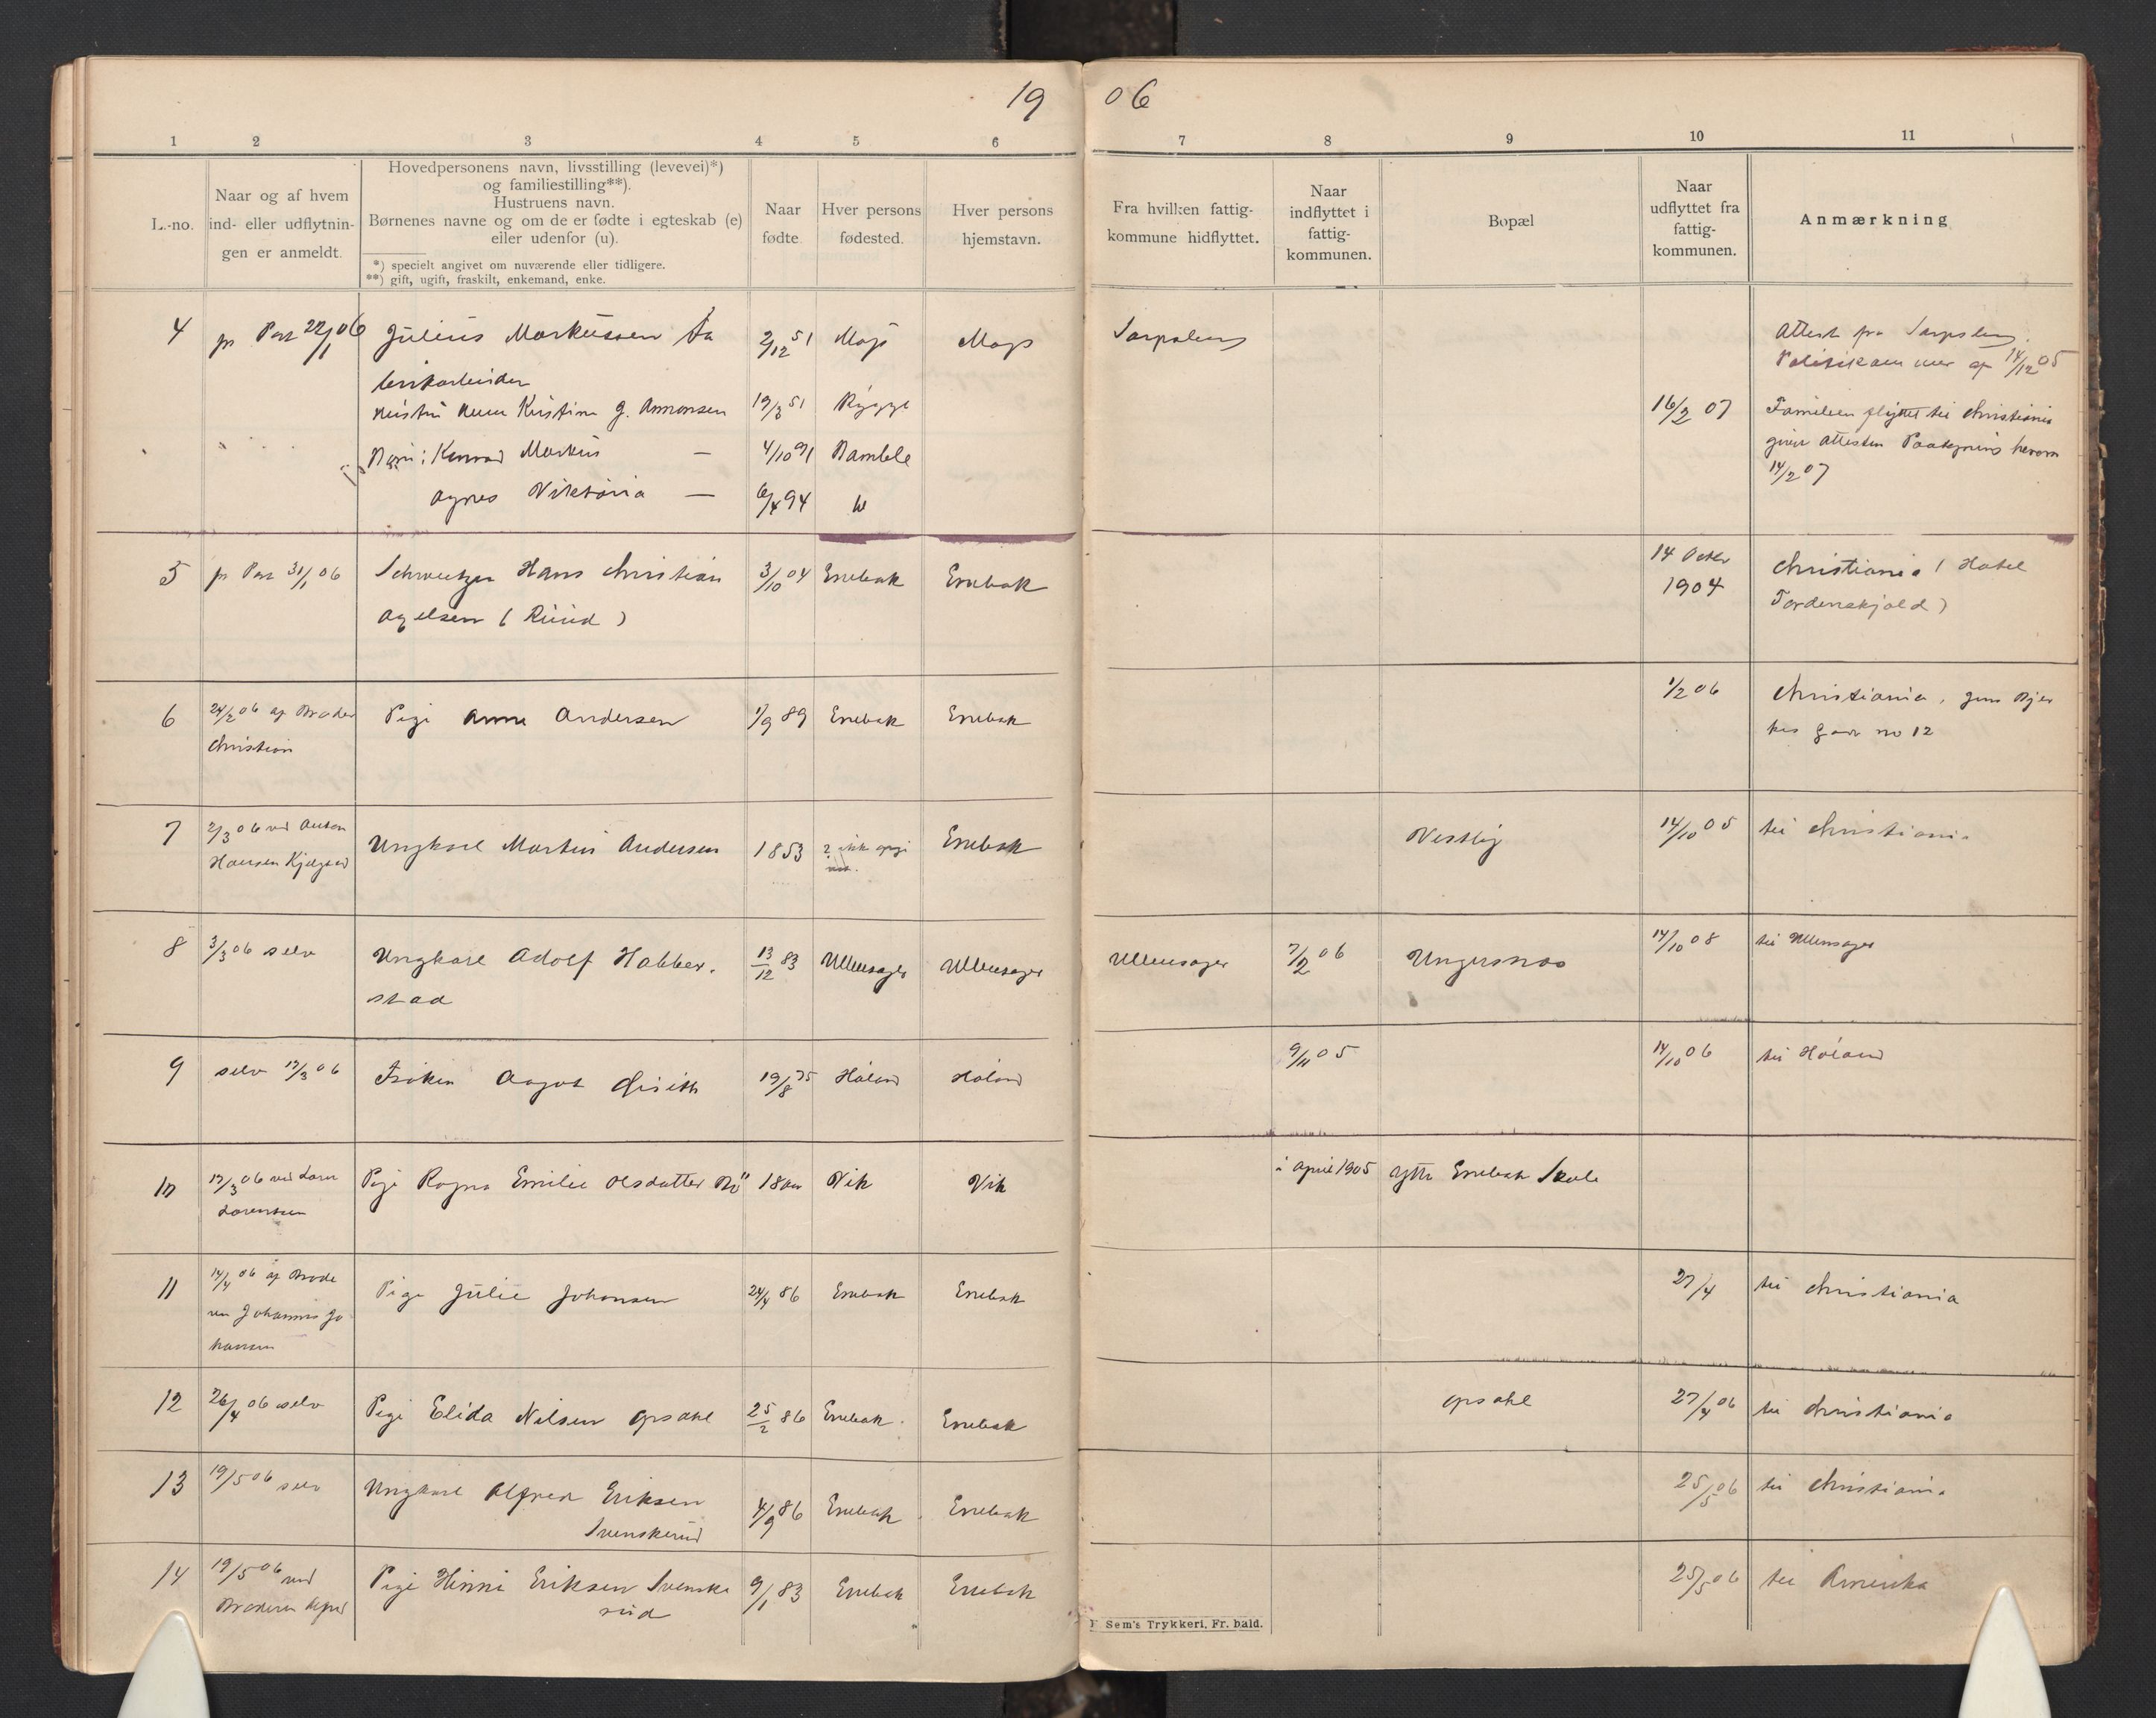 19 06
1 2 3 4 5 6 7 8 9 10 11
L.-no.
Naar og af hvem
ind- eller udflytnin-
gen er anmeldt.
Hovedpersonens navn, livsstilling (levevei)*)
og familiestilling**).
Hustruens navn.
Børnenes navne og om de er fødte i egteskab (e)
eller udenfor (u).
*) specielt angivet om nuværende eller tidligere.
**) gift, ugift, fraskilt, enkemand, enke.
Naar
fødte.
Hver persons
fødested.
Hver persons
hjemstavn.
Fra hvilken fattig-
kommune hidflyttet.
Naar
indflyttet i
fattig-
kommunen.
Bopæl
Naar
udflyttet fra
fattig-
kommunen.
Anmærkning
4 pr Post 22/1 06 Julius Markussen fa 2/12 51 Moss Moss Sarpsborg Attest fra Sarpsborg
brikarbeider Politikammer af 14/12 05
Hustru Anne Kristine g. Amonsen 19/3 51 Rygge 16/2 07 Familien flyttet til Christiania
Børn: Konrad Markus — 4/10 91 Bamble given attesten Paategning herom
Agnes Viktoria — 6/4 94 14/2 07
5 pr Post 31/1 06 Schweitzer Hans Christian 3/10 04 Enebak Enebak 14 Octbr Christiania (Hotel
Axelsen (Ruud) 1904 Tordenskjold)
6 24/2 06 af Broder Pige Anna Andersen 1/9 89 Enebak Enebak 1/2 06 Christiania, Jens Bjer
Christian kes gade no 12
7 2/3 06 ved Anton Ungkarl Martin Andersen 1853 ? ikke opgi Enebak Vestby 14/10 05 til Christiania
Hansen Kjelgaard vet.
8 3/3 06 selv Ungkarl Adolf Habber- 13/12 83 Ullensager Ullensager Ullensager 7/2 06 Ungersnes 14/10 08 til Ullensager
stad
9 selv 17/3 06 Frøken Aagot 19/8 75 Høland Høland 9/11 05 14/10 06 til Høland
10 17/3 06 ved Pige Ragna Emilie Olsdatter Bø 18 aar Vik Vik i April 1905 Ytre Enebak Skole
Lorentsen
11 14/4 06 af Brode Pige Julie Johansen 24/4 86 Enebak Enebak 27/4 til Christiania
ren Johannes Jo
hansen
12 26/4 06 selv Pige Elida Nilsen Opsahl 25/2 86 Enebak Enebak Opsahl 27/4 06 til Christiania
13 19/5 06 selv Ungkarl Alfred Eriksen 4/9 86 Enebak Enebak 25/5 06 til Christiania
Svenskerud
14 19/5 06 ved Pige Hinni Eriksen Svenske 9/1 83 Enebak Enebak 25/5 06 til Amerika
Broderen Alfred rud
F. Sem's Trykkeri, Fr. hald.